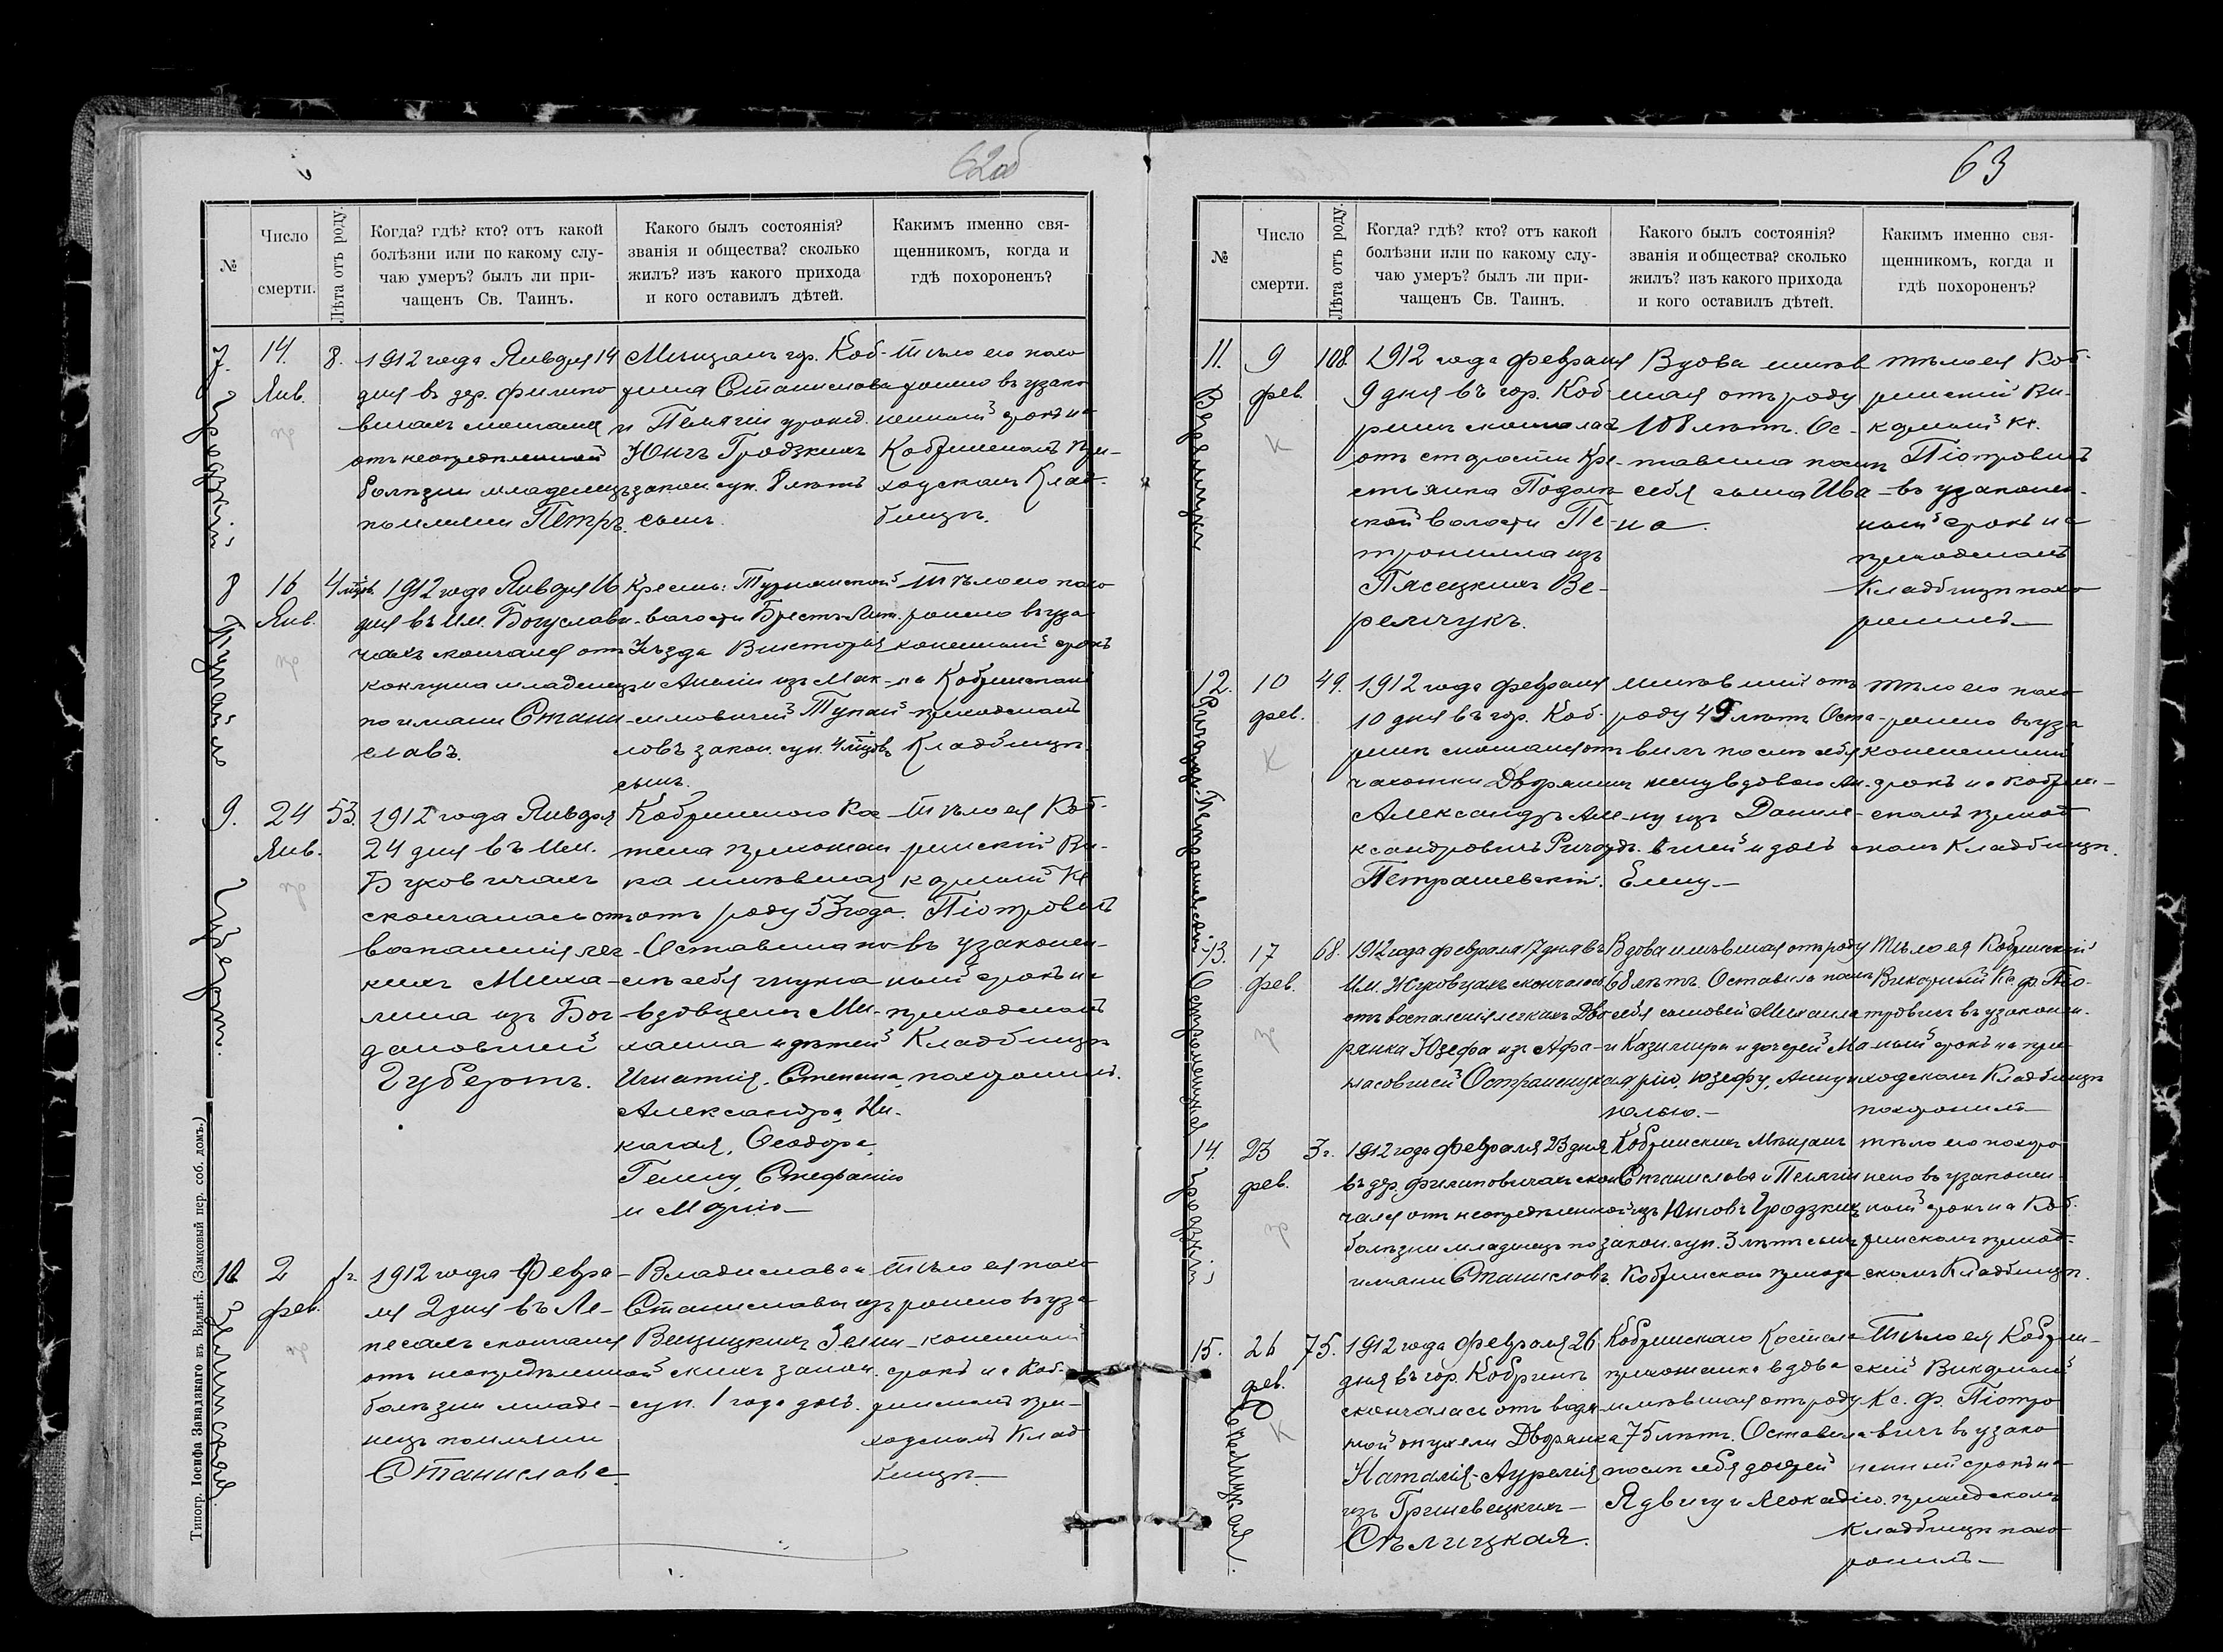 62об
№
Число
смерти.
Лѣта отъ роду.
Когда? гдѣ? кто? отъ какой
болѣзни или по какому слу-
чаю умеръ? былъ ли при-
чащенъ Св. Таинъ.
Какого былъ состоянія?
званія и общества? сколько
жилъ? изъ какого прихода
и кого оставилъ дѣтей.
Какимъ именно свя-
щенникомъ, когда и
гдѣ похороненъ?
7.
14.
Янв.
пр
8.
1912 года Января 14
дня въ дер. Филипо
вичахъ скончался
отъ неопредѣленной
болѣзни младенецъ
по имени Петръ.
Мѣщанъ гор. Коб-
рина Станислава
и Пелагіи урожд.
Юнгъ Гродзкихъ
закон. суп. 8 лѣтъ
сынъ.
Тѣло его похо
ронено въ узако
ненный срокъ на
Кобринскомъ при-
ходскомъ Клад-
бищѣ.
8
16
Янв.
пр
4 мѣс.
1912 года Января 16
дня въ Им. Богуслави-
чахъ скончался отъ
коклуша младенецъ
по имени Стани-
славъ.
Крестьянъ
волости Брестъ-Лит.
Уѣзда Виктора
и Анели изъ Мак-
симовичей Тупай-
ловъ закон. суп. 4 мѣсяцовъ
сынъ.
Тѣло его похо
ронено въ уза
коненный срокъ
на Кобринскомъ
приходскомъ
Кладбищѣ.
Тупайло
9.
24
Янв.
пр
53.
1912 года Января
24 дня въ Им.
Буховичахъ
скончалась отъ
воспаленія лег-
кихъ Миха-
лина изъ Бог-
дановичей
Губертъ.
Кобринского Кос-
тела прихожан
ка имѣвшая
отъ роду 53 года.
Оставила по-
слѣ себя мужа
вдовцемъ Ми-
хаила и дѣтей
Игнатія, Степана,
Александра, Ни-
колая, Ѳеодора,
Гелену, Стефанію
и Марію—
Тѣло ея Коб-
ринскій Ви-
карный Кс
Піотровичъ
въ узаконен-
ный срокъ на
приходскомъ
Кладбищѣ
похоронилъ.
Губертъ.
10.
2
фев.
пр
1 г.
1912 года Февра-
ля 2 дня въ Ле-
песахъ скончался
отъ неопредѣленной
болѣзни младе-
нецъ по имени
Станислава.
Владислава и
Станиславы изъ
закон.
суп. 1 года дочь.
Тѣло ея похо
ронено въ уза
коненный
срокъ на Коб-
ринскомъ при-
ходскомъ Клад
бищѣ—
Типогр. Іосифа Завадзкаго въ Вильнѣ. (Замковый пер. соб. домъ.)
63
№
Число
смерти.
Лѣта отъ роду.
Когда? гдѣ? кто? отъ какой
болѣзни или по какому слу-
чаю умеръ? былъ ли при-
чащенъ Св. Таинъ.
Какого былъ состоянія?
званія и общества? сколько
жилъ? изъ какого прихода
и кого оставилъ дѣтей.
Какимъ именно свя-
щенникомъ, когда и
гдѣ похороненъ?
11.
9
фев.
К
108.
1912 года февраля
9 дня въ гор. Коб-
ринѣ скончалась
отъ старости Кре-
стьянка Подолѣс
ской волости Пе-
тронилла изъ
Пясецкихъ Ве-
ремчукъ.
Вдова имѣв
шая отъ роду
108 лѣтъ. Ос-
тавила послѣ
себя сына Ива-
на.
Тѣло ея Коб-
ринскій Ви-
карный Кс.
Піотровичъ
въ узаконен-
ный срокъ на
приходскомъ
Кладбищѣ похо
ронилъ—
12.
10
фев.
К
49.
1912 года февраля
10 дня въ гор. Коб-
ринѣ скончался отъ
чахотки Дворянинъ
Александръ Але-
ксандровичъ Рихардъ-
Петрашевскій.
имѣвшій отъ
роду 49 лѣтъ Оста-
вилъ послѣ себя
жену вдовою Ан-
ну изъ Даниле-
вичей и дочь
Елену.—
Тѣло его похо
ронено въ уза
коненный
срокъ на Кобрин-
скомъ приход
скомъ Кладбищѣ.
13.
17
фев.
пр
68.
1912 года февраля 17 дня въ
Им. Жуховцахъ скончалась
отъ воспаленія легкихъ Дво
рянка Юзефа изъ Афа-
насовичей Остромецкая
Вдова имѣвшая отъ роду
68 лѣтъ. Оставила послѣ
себя сыновей Михаила
и Казимира и дочерей Ма-
рію, Юзефу, Анну и
Юлью.—
Тѣло ея Кобринскій
Викарный Кс. ф. Піо-
тровичъ въ узаконен-
ный срокъ на при
ходскомъ Кладбищѣ
похоронилъ—
14.
23
фев.
пр
3 г.
1912 года Февраля 23 дня
въ дер. Филиповичахъ скон
чался отъ неопредѣленной
болѣзни младенецъ по
имени Станиславъ.
Кобринскихъ Мѣщанъ
Станислава и Пелагіи
изъ Юнговъ Гродзкихъ
закон. суп. 3 лѣтъ сынъ
Кобринскаго прихода
Тѣло его похоро
нено въ узаконен-
ный срокъ на Коб-
ринскомъ приход-
скомъ Кладбищѣ.
15.
26
фев.
К
75.
1912 года Февраля 26
дня въ гор. Кобринѣ
скончалась отъ водя
ной опухоли Дворянка
Наталія-Аурелія
изъ Гриневецкихъ—
Сѣлицкая.
Кобринскаго Костела
прихожанка вдова
имѣвшая отъ роду
75 лѣтъ. Оставила
послѣ себя дочерей
Ядвигу и Леокадію.
Тѣло ея Кобрин-
скій Викарный
Кс. ф. Піотро
вичъ въ узако
ненный срокъ на
приходскомъ
Кладбищѣ похо
ронилъ—